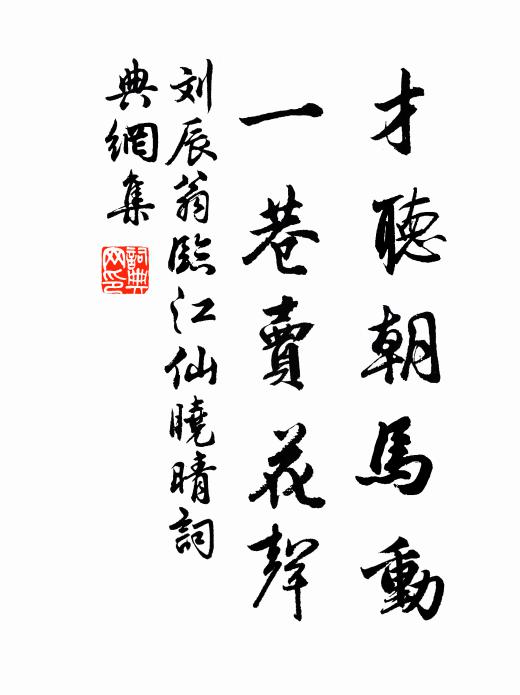 才聽朝馬動
一巷賣花聲
刘辰翁臨江仙曉晴詞
典網集
詞典
网印